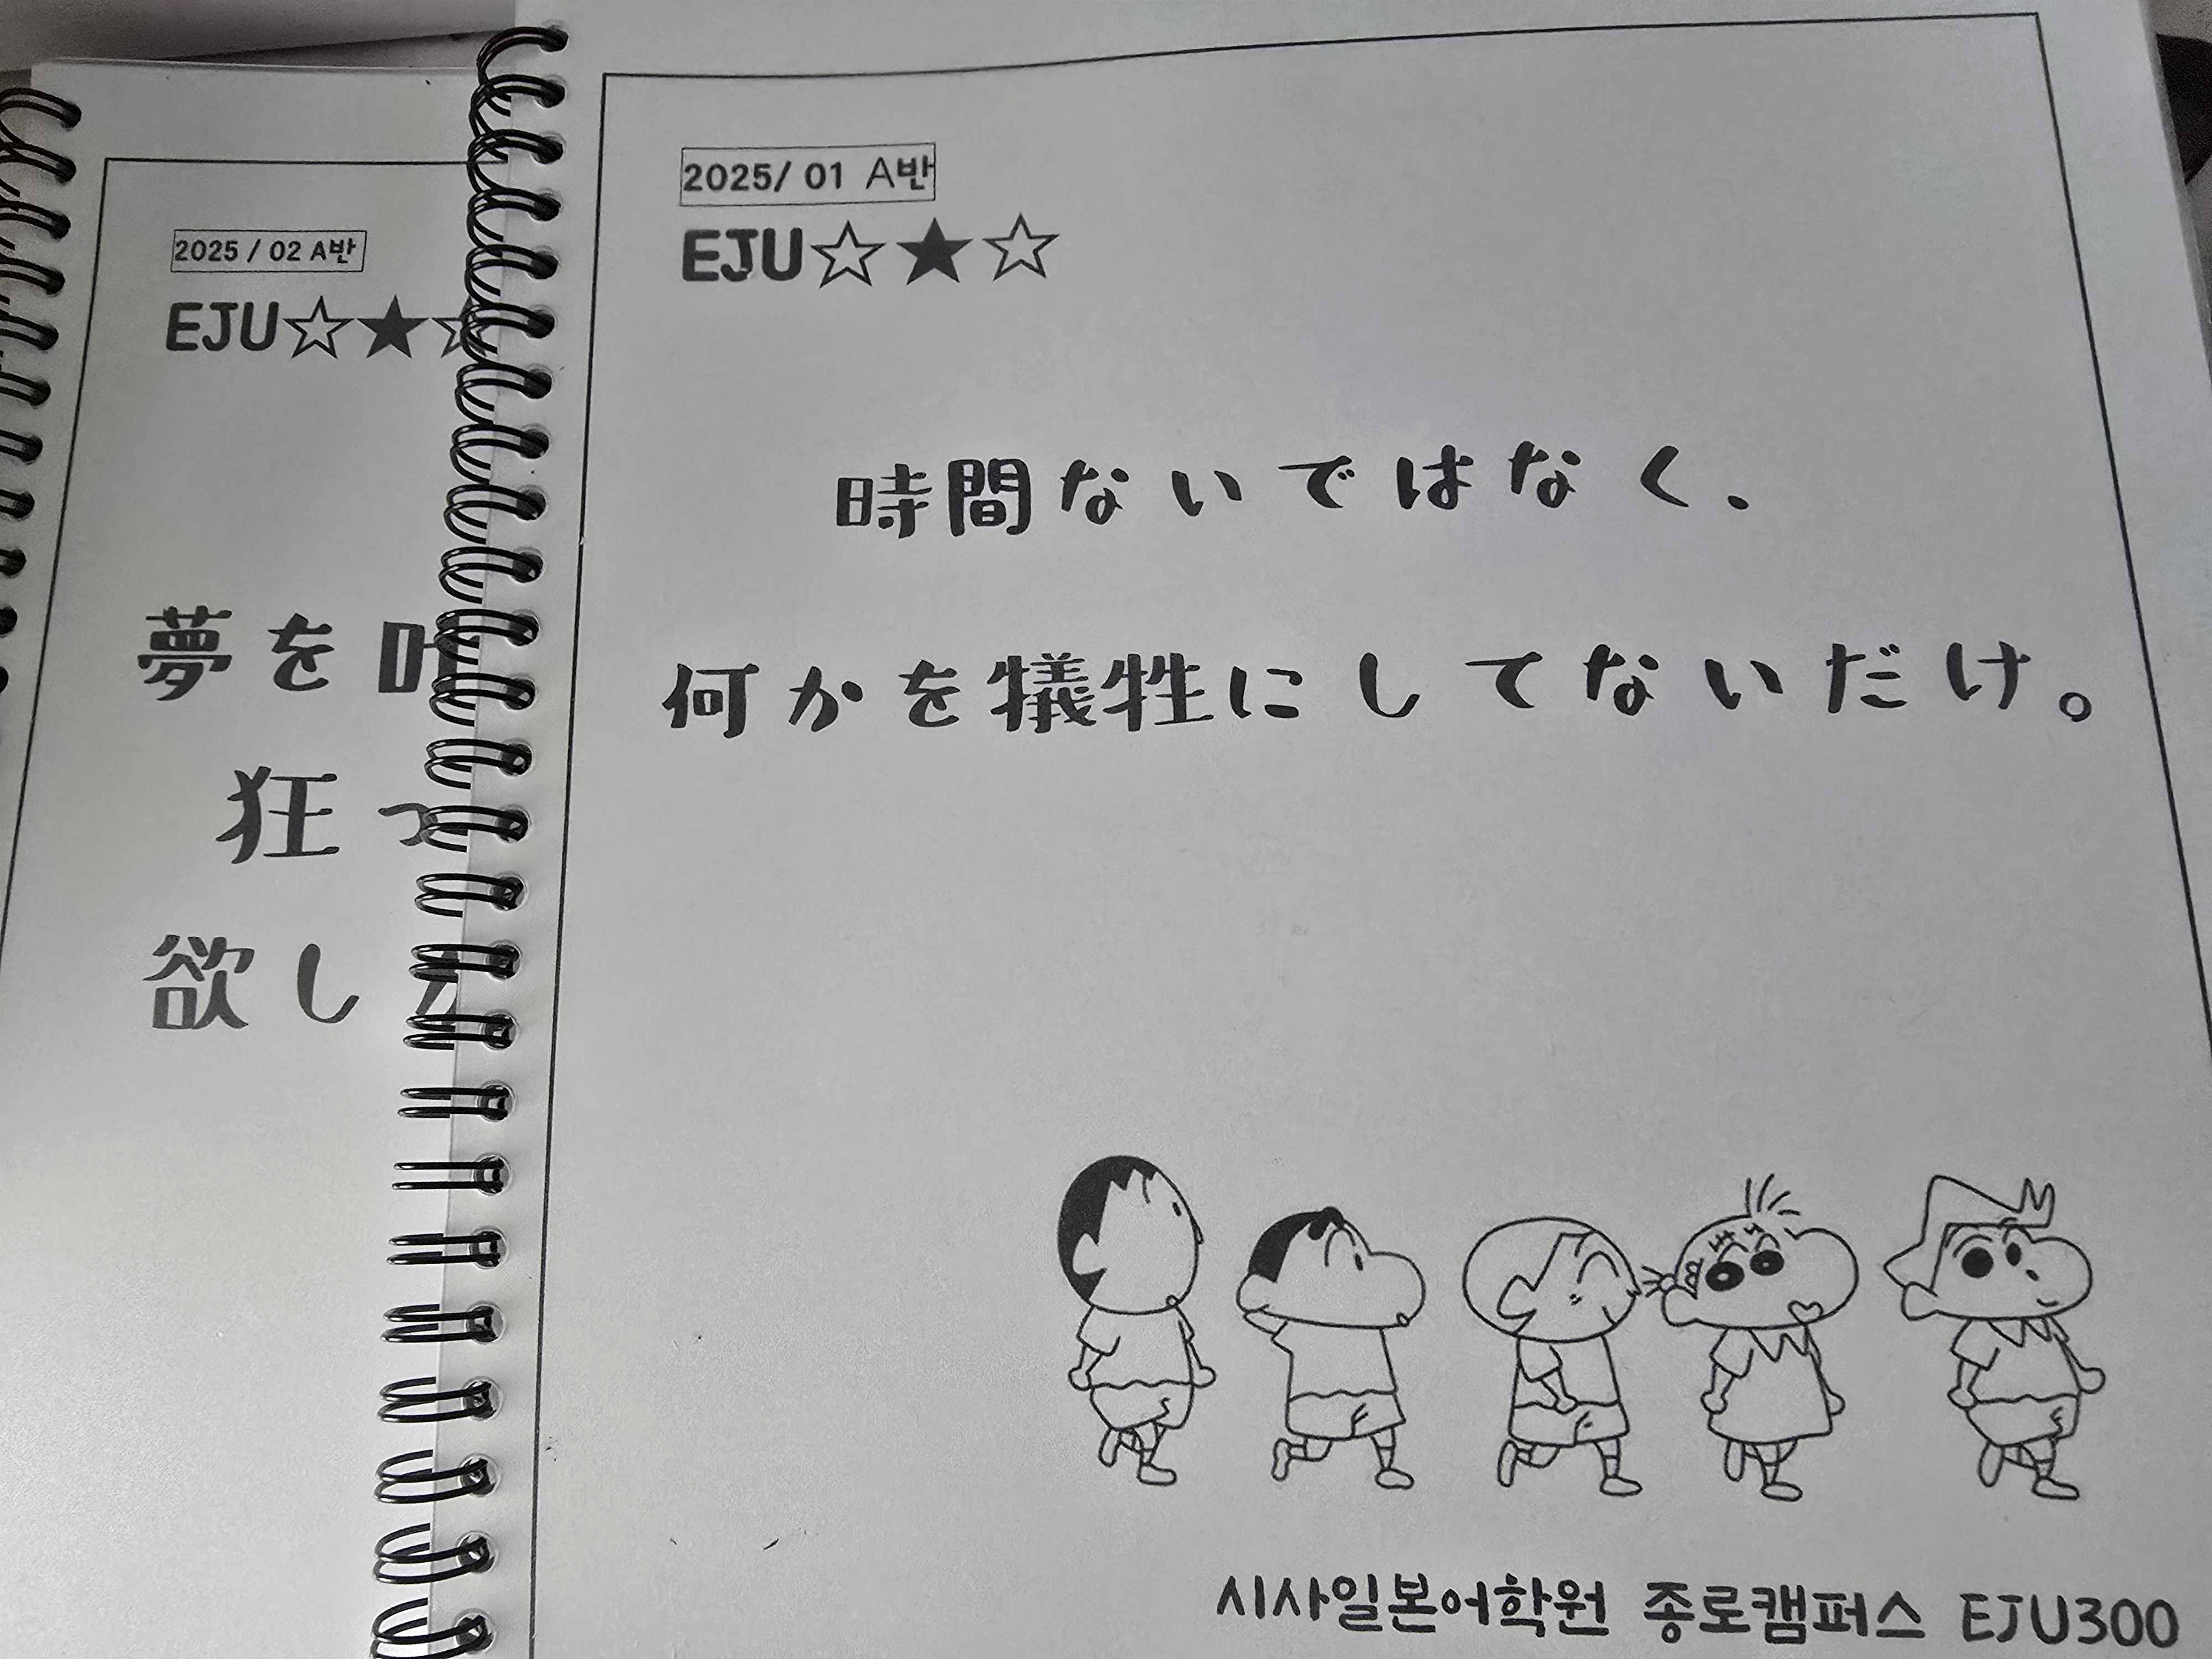 2025 / 02 A반
EJU☆★☆
夢を叶
狂っ
欲し
2025/ 01 A반
EJU☆★☆
時間ないではなく、
何かを犠牲にしてないだけ。
시사일본어학원 종로캠퍼스 EJU300